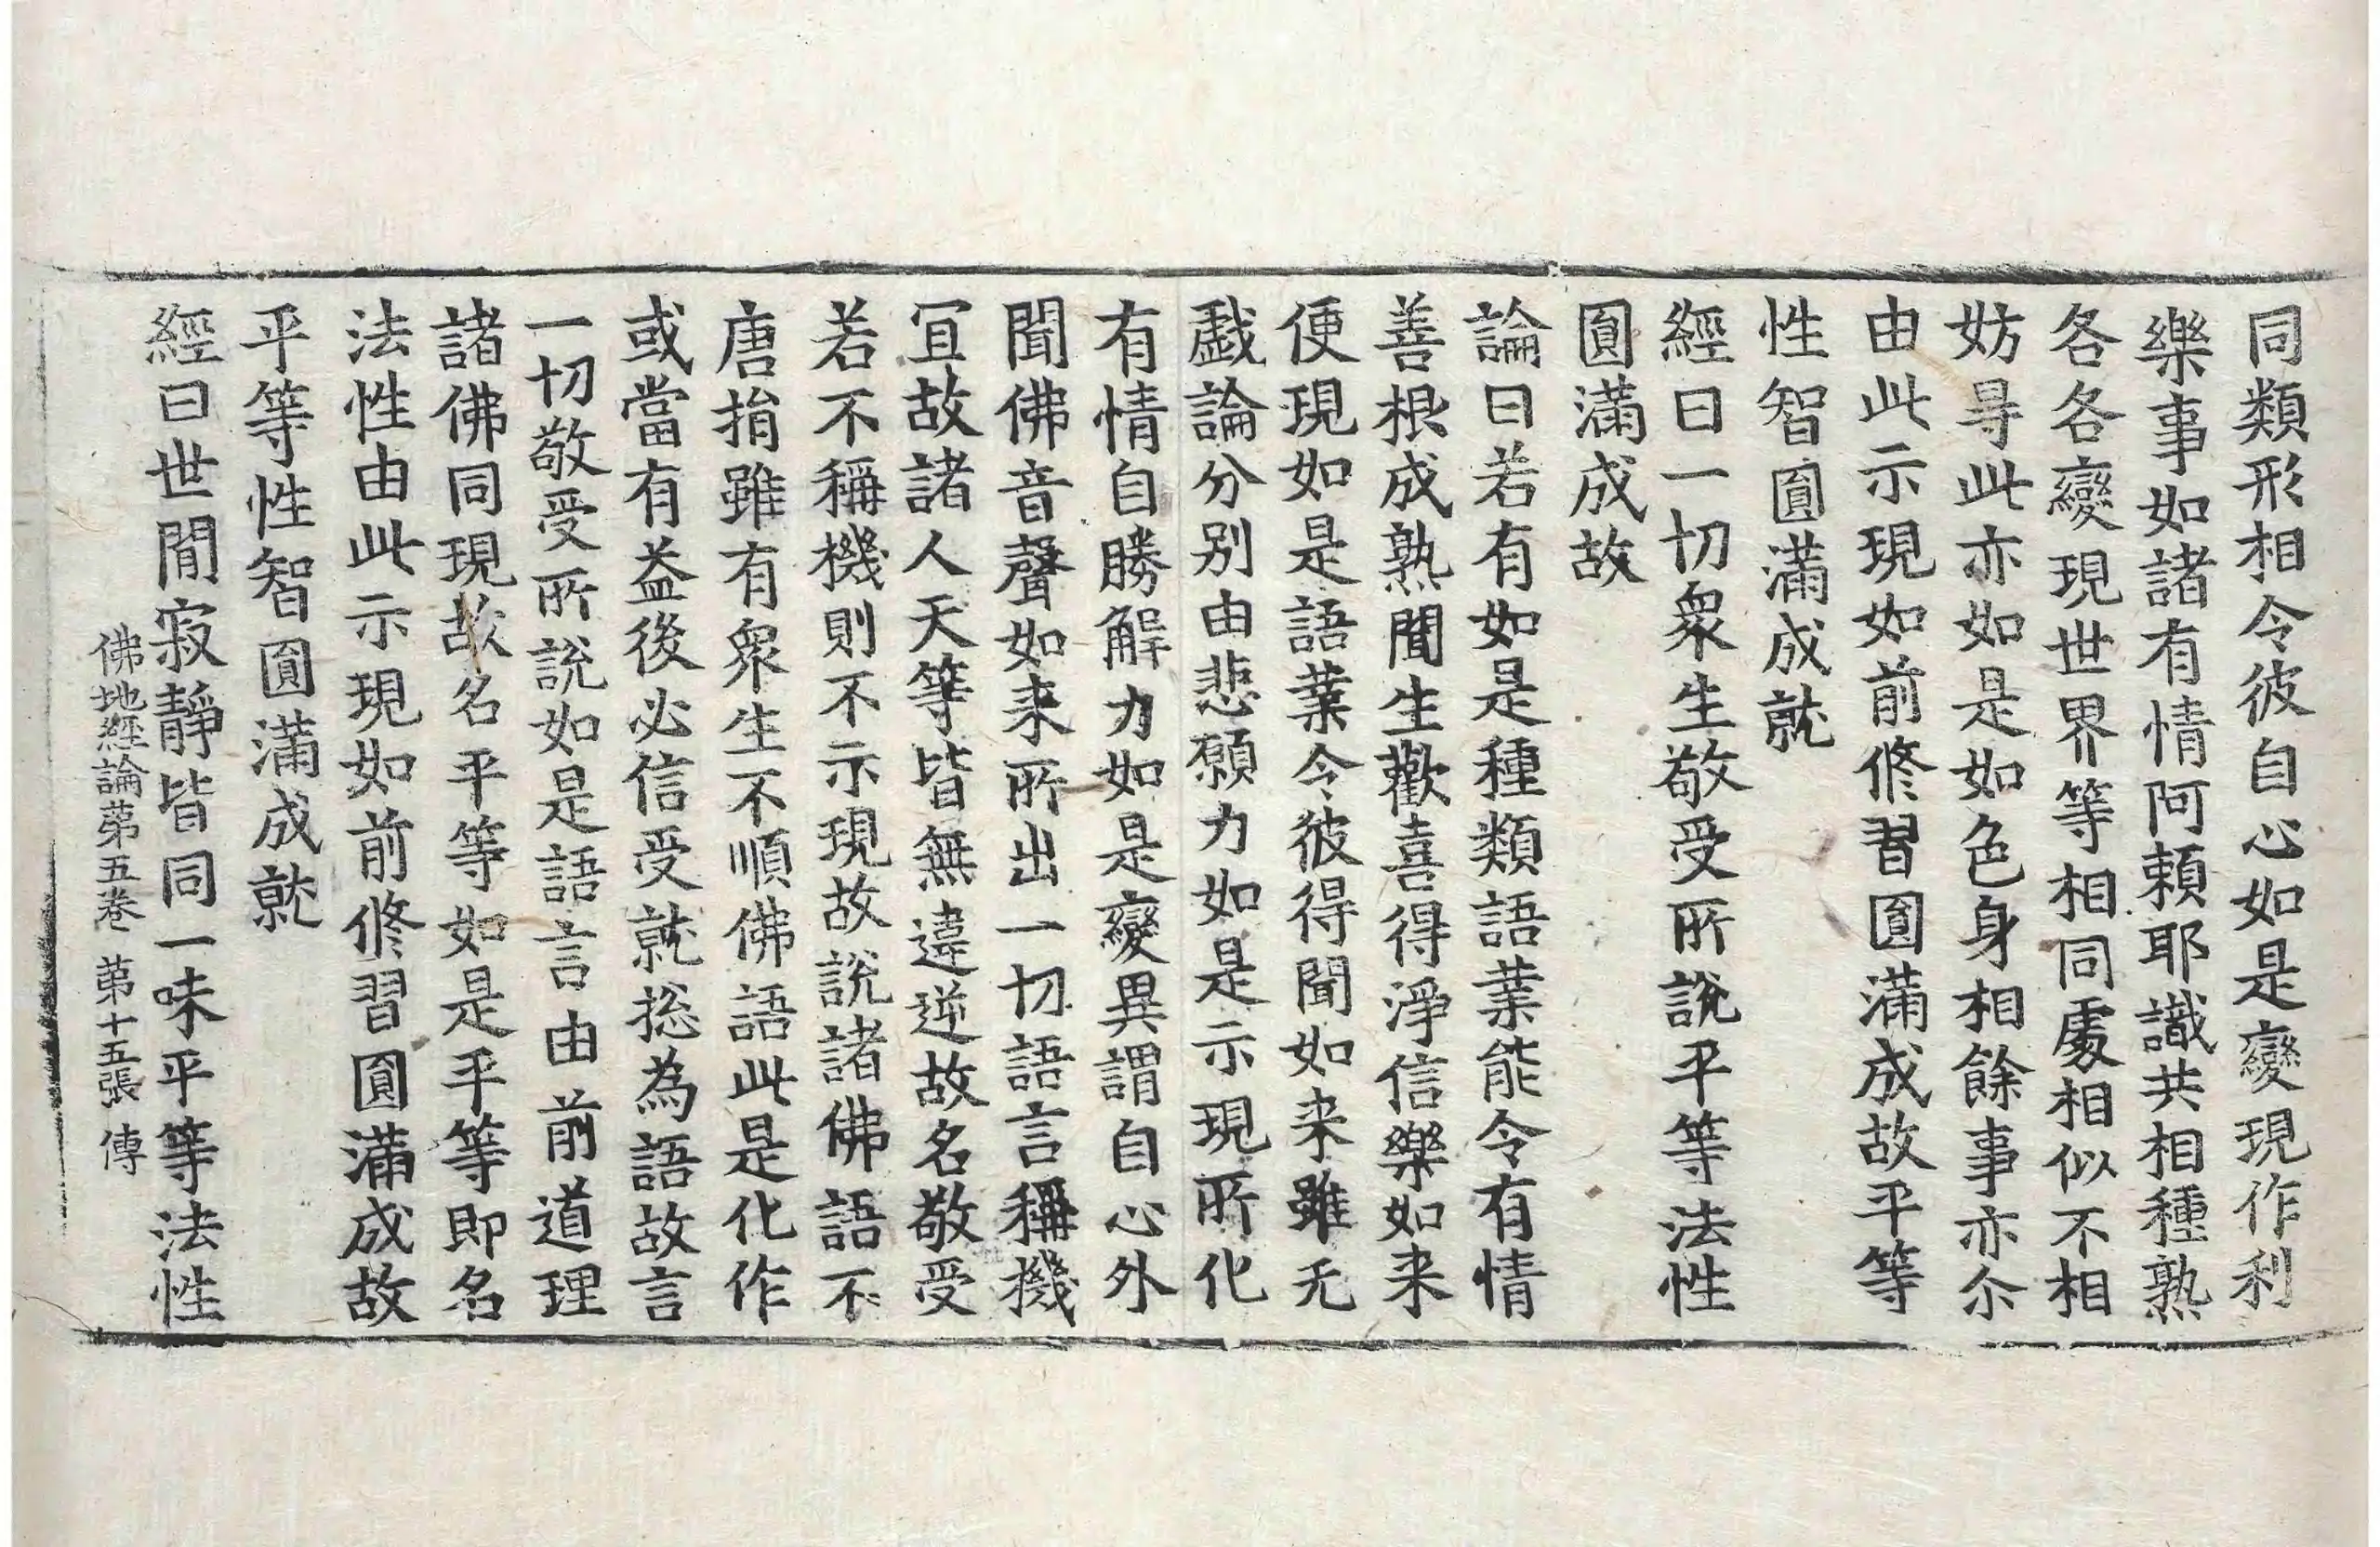 同類形相令彼自心如是變現作利
樂事如諸有情阿頼耶識共相種熟
各各變現世界等相同處相似不相
妨㝵此亦如是如色身相餘事亦尒
由此示現如前修習圓滿成故平等
性智圓滿成就
經曰一切衆生敬受所說平等法性
圓滿成故
論曰若有如是種類語業能令有情
善根成熟聞生歡喜得淨信樂如来
便現如是語業令彼得聞如来雖无
戱論分别由悲願力如是示現所化
有情自勝解力如是變異謂自心外
聞佛音聲如来所出一切語言稱機
冝故諸人天等皆無違逆故名敬受
若不稱機則不示現故說諸佛語不
唐捐雖有衆生不順佛語此是化作
或當有益後必信受就揔為語故言
一切敬受所說如是語言由前道理
諸佛同現故名平等如是平等即名
法性由此示現如前修習圓滿成故
平等性智圓滿成就
經曰世間寂靜皆同一味平等法性
佛地經論苐五卷 苐十五張 傳